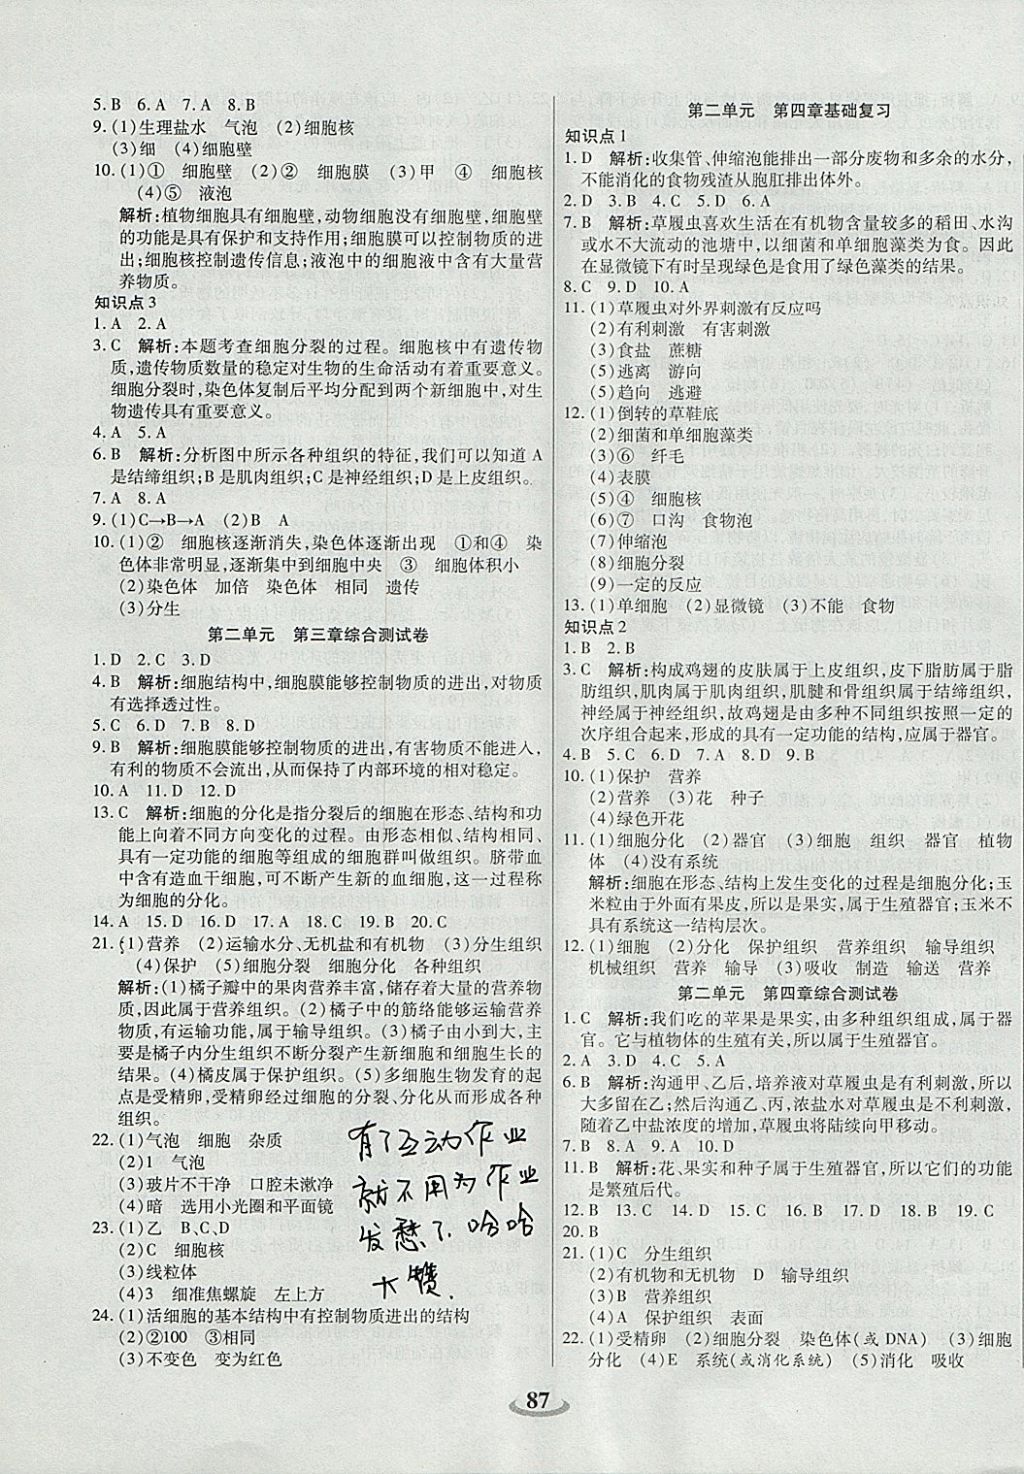 5. B　6. A　7. A　8. B
9. (1)生理盐水　气泡　(2)细胞核
(3)细　(4)细胞壁
10. (1)①　细胞壁　(2)②　细胞膜　(3)甲　④　细胞核
(4)⑤　液泡
解析:植物细胞具有细胞壁,动物细胞没有细胞壁,细胞壁
的功能是具有保护和支持作用;细胞膜可以控制物质的进
出;细胞核控制遗传信息;液泡中的细胞液中含有大量营
养物质。
知识点3
1. A　2. A
3. C　解析:本题考查细胞分裂的过程。细胞核中有遗传物
质,遗传物质数量的稳定对生物的生命活动有着重要意义。
细胞分裂时,染色体复制后平均分配到两个新细胞中,对生
物遗传具有重要意义。
4. A　5. A
6. B　解析:分析图中所示各种组织的特征,我们可以知道 A
是结缔组织;B是肌肉组织;C是神经组织;D是上皮组织。
7. A　8. A
9. (1)C→B→A　(2)B　A
10. (1)②　细胞核逐渐消失,染色体逐渐出现　①和④　染
色体非常明显,逐渐集中到细胞中央　③　细胞体积小
(2)染色体　加倍　染色体　相同　遗传
(3)分生
第二单元　第三章综合测试卷
1. D　2. C　3. D
4. B　解析:细胞结构中,细胞膜能够控制物质的进出,对物质
有选择透过性。
5. C　6. D　7. B　8. D
9. B　解析:细胞膜能够控制物质的进出,有害物质不能进入,
有利的物质不会流出,从而保持了内部环境的相对稳定。
10. A　11. D　12. D
13. C　解析:细胞的分化是指分裂后的细胞在形态、结构和功
能上向着不同方向变化的过程。由形态相似、结构相同、
具有一定功能的细胞等组成的细胞群叫做组织。脐带血
中含有造血干细胞,可不断产生新的血细胞,这一过程称
为细胞的分化。
14. A　15. D　16. D　17. A　18. C　19. B　20. C
21. (1)营养　(2)运输水分、无机盐和有机物　(3)分生组织
(4)保护　(5)细胞分裂　细胞分化　各种组织
解析:(1)橘子瓣中的果肉营养丰富,储存着大量的营养物
质,因此属于营养组织。(2)橘子中的筋络能够运输营养
物质,有运输功能,属于输导组织。(3)橘子由小到大,主
要是橘子内分生组织不断分裂产生新细胞和细胞生长的
结果。(4)橘皮属于保护组织。(5)多细胞生物发育的起
点是受精卵,受精卵经过细胞的分裂、分化从而形成各种
组织。
22. (1)气泡　细胞　杂质
(2)1　气泡
(3)玻片不干净　口腔未漱净
(4)暗　选用小光圈和平面镜
23. (1)乙　B、C、D
(2)C　细胞核
(3)线粒体
(4)3　细准焦螺旋　左上方
24. (1)活细胞的基本结构中有控制物质进出的结构
(2)②100　③相同
(3)不变色　变为红色
有了互动作业
就不用为作业
发愁了,哈哈
大赞.
第二单元　第四章基础复习
知识点1
1. D　解析:收集管、伸缩泡能排出一部分废物和多余的水分,
不能消化的食物残渣从胞肛排出体外。
2. D　3. B　4. C　5. D　6. A
7. B　解析:草履虫喜欢生活在有机物含量较多的稻田、水沟
或水不大流动的池塘中,以细菌和单细胞藻类为食。因此
在显微镜下有时呈现绿色是食用了绿色藻类的结果。
8. C　9. D　10. A
11. (1)草履虫对外界刺激有反应吗
(2)有利刺激　有害刺激
(3)食盐　蔗糖
(5)逃离　游向
(5)趋向　逃避
12. (1)倒转的草鞋底
(2)细菌和单细胞藻类
(3)⑥　纤毛
(4)表膜
(5)④　细胞核
(6)⑦　口沟　食物泡
(7)伸缩泡
(8)细胞分裂
(9)一定的反应
13. (1)单细胞　(2)显微镜　(3)不能　食物
知识点2
1. B　2. B
3. C　解析:构成鸡翅的皮肤属于上皮组织,皮下脂肪属于脂
肪组织,肌肉属于肌肉组织,肌腱和骨组织属于结缔组织,
神经属于神经组织,故鸡翅是由多种不同组织按照一定的
次序组合起来,形成的具有一定功能的结构,应属于器官。
4. B　5. C　6. D　7. A　8. D　9. B
10. (1)保护　营养
(2)营养　(3)花　种子
(4)绿色开花
11. (1)细胞分化　(2)器官　(3)细胞　组织　器官　植物
体　(4)没有系统
解析:细胞在形态、结构上发生变化的过程是细胞分化;玉
米粒由于外面有果皮,所以属于生殖器官;玉米不
具有系统这一结构层次。
12. (1)细胞　(2)分化　保护组织　营养组织　输导组织
机械组织　营养　输导　(3)吸收　制造　输送　营养
第二单元　第四章综合测试卷
1. C　解析:我们吃的苹果是果实,由多种组织组成,属于器
官。它与植物体的生殖有关,所以属于生殖器官。
2. A　3. D　4. C　5. A
6. B　解析:沟通甲、乙后,培养液对草履虫是有利刺激,所以
大多留在乙;然后沟通乙、丙,浓盐水对草履虫是不利刺激,
随着乙中盐浓度的增加,草履虫将陆续向甲移动。
7. B　8. A　9. A　10. D
11. B　解析:花、果实和种子属于生殖器官,所以它们的功能
是繁殖后代。
12. B　13. C　14. D　15. C　16. A　17. D　18. B　19. C
20. B
21. (1)C　分生组织
(2)有机物和无机物　D　输导组织
(3)B　营养组织
(4)A　保护组织　表面
22. (1)受精卵　(2)细胞分裂　染色体(或 DNA)　(3)细胞
分化　(4)E　系统(或消化系统)　(5)消化　吸收
87